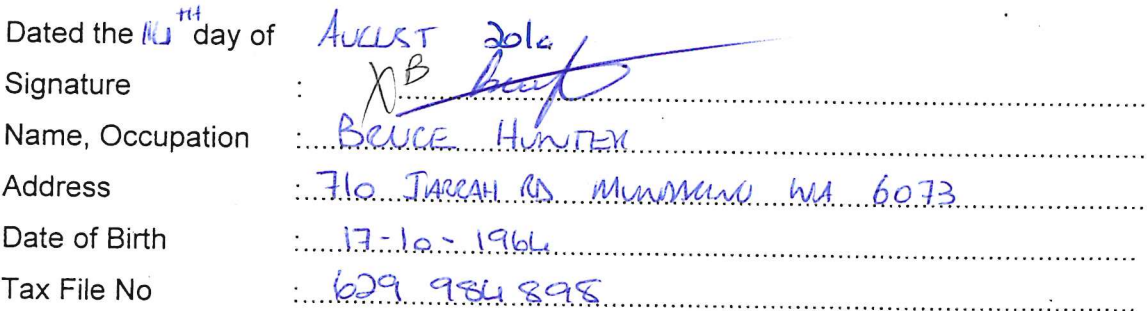 Dated the 14TH day of AUGUST 2010
Signature : XB
Name, Occupation : BRUCE HUNTER
Address : 710 JARRAH RD MUNDARING WA 6073
Date of Birth : 17-10-1964
Tax File No : 629 984 898